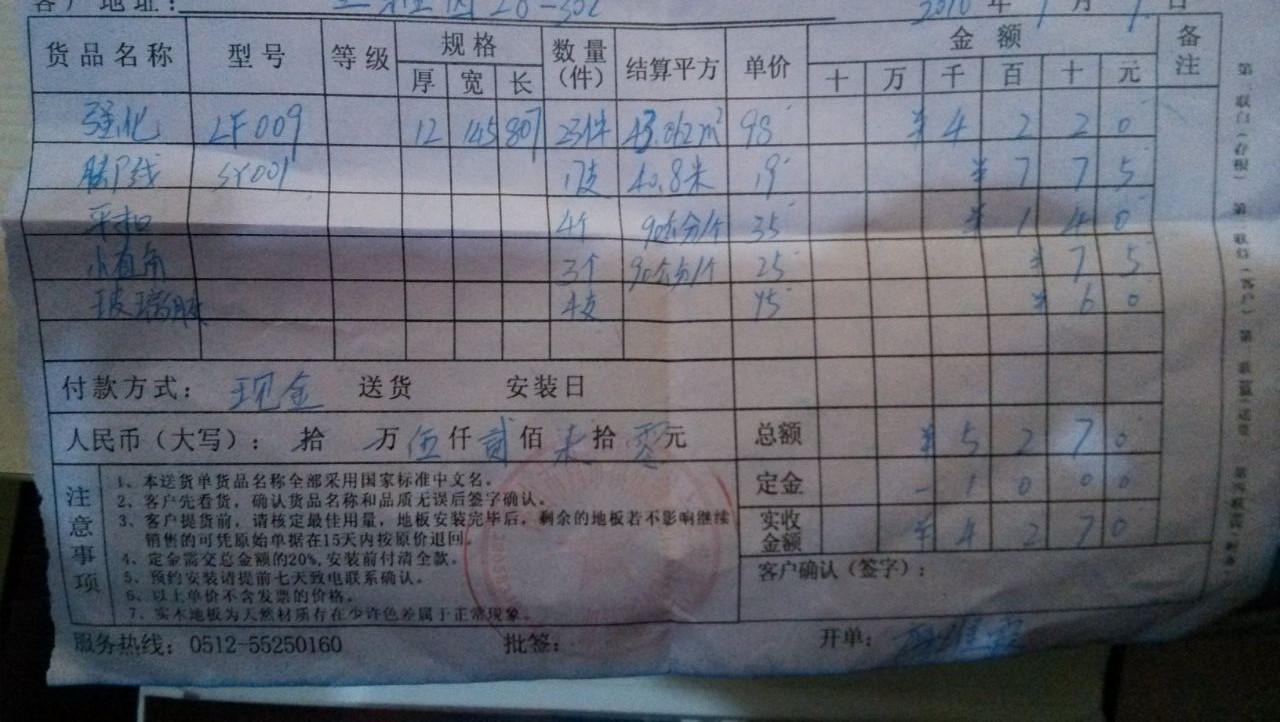 客户地址： 28-302 2010年1月1日
货品名称 型号 等级 规格 数量(件) 结算平方 单价 金额 备注
厚 宽 长 十 万 千 百 十 元
强化 LF009 12 145 807 23件 43.012m² 98 ¥4220
脚线 SY001 17支 40.8米 19 ¥775
平扣 4个 90公分/个 35 ¥140
小直角 3个 90公分/个 25 ¥75
玻璃胶 4支 15 ¥60
付款方式：现金 送货 安装日
人民币（大写）： 拾 万伍仟贰佰柒拾零元 总额 ¥5270
定金 -1000
实收金额 ¥4270
客户确认（签字）：
注意事项
1、本送货单货品名称全部采用国家标准中文名。
2、客户先看货，确认货品名称和品质无误后签字确认。
3、客户提货前，请核定最佳用量，地板安装完毕后，剩余的地板若不影响继续
销售的可凭原始单据在15天内按原价退回。
4、定金需交总金额的20%，安装前付清全款。
5、预约安装请提前七天致电联系确认。
6、以上单价不含发票的价格。
7、实木地板为天然材质存在少许色差属于正常现象。
服务热线：0512-55250160 批签： 开单：